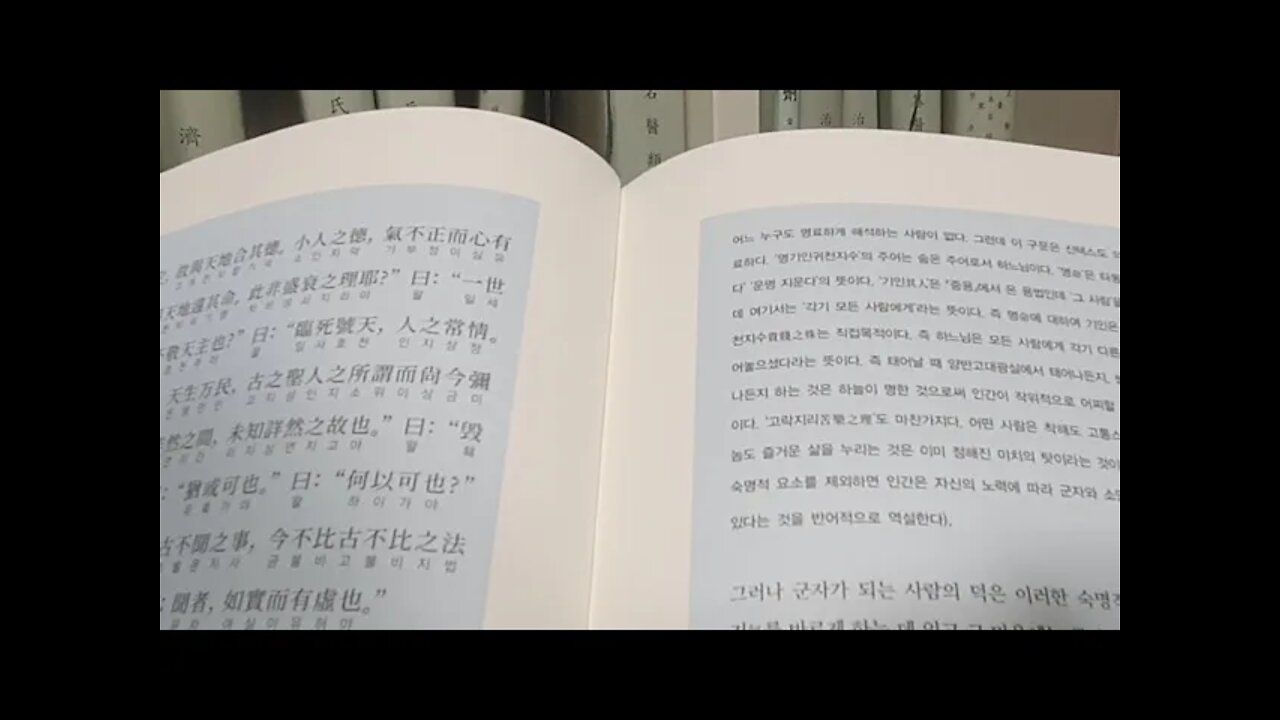 濟
氏
名醫類
治
治
敢與天地合其德。小人之德, 氣不正而心有
소인지덕 기부정이심유
天地違其命, 此非盛衰之理耶?” 曰: “一世
왈 일세
不敬天主也?” 曰: “臨死號天, 人之常情。
왈 임사호천 인지상정
天生万民, 古之聖人之所謂而尙今彌
천생만민 고지성인지소위이상금미
然之間, 未知詳然之故也。” 曰: “毁
미지상연지고야 왈 훼
“猶或可也。” 曰: “何以可也?”
유혹가야 왈 하이가야
古不聞之事, 今不比古不比之法
불문지사 금불비고불비지법
聞者, 如實而有虛也。”
문자 여실이유허야
어느 누구도 명료하게 해석하는 사람이 없다. 그런데 이 구문은 신택스도
료하다. ‘명기인귀천지수’의 주어는 숨은 주어로서 하느님이다. ‘명승’은 타동
다’ ‘운명 지운다’의 뜻이다. ‘기인其人’은 『중용』에서 온 용법인데 ‘그 사람’을
데 여기서는 ‘각기 모든 사람에게’라는 뜻이다. 즉 명승에 대하여 기인은
천지수貴賤之殊는 직접목적이다. 즉 하느님은 모든 사람에게 각기 다른
어놓으셨다라는 뜻이다. 즉 태어날 때 양반고대광실에서 태어나든지,
나든지 하는 것은 하늘이 명한 것으로써 인간이 작위적으로 어찌할
이다. ‘고락지리苦樂之理’도 마찬가지다. 어떤 사람은 착해도 고통스
놈도 즐거운 삶을 누리는 것은 이미 정해진 이치의 탓이라는 것이
숙명적 요소를 제외하면 인간은 자신의 노력에 따라 군자와 소인
있다는 것을 반어적으로 역설한다).
그러나 군자가 되는 사람의 덕은 이러한 숙명적
바르게 하는 데 있고 그